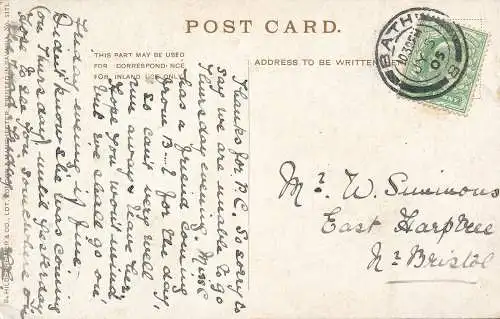 POST CARD.
THIS PART MAY BE USED
FOR CORRESPONDENCE
FOR INLAND USE ONLY
ADDRESS TO BE WRITTEN
BATH
JA
05
8
Thanks for P.C. So sorry to
say we are unable to go
Thursday evening. Miss C
has a friend coming
from B-l for the day,
so can't very well
run away & leave her,
hope you won't mind,
but we shall go on
Friday evening if fine.
Didn't know she was coming
(on Thursday) until yesterday
Hope to see you somewhere on
Mr. W. Simmons
East Harptree
Nr. Bristol